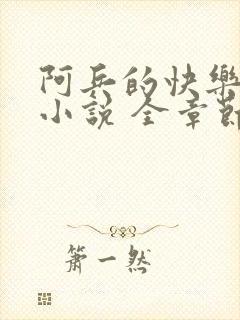 阿兵的快樂
小說 全章節
簫一然